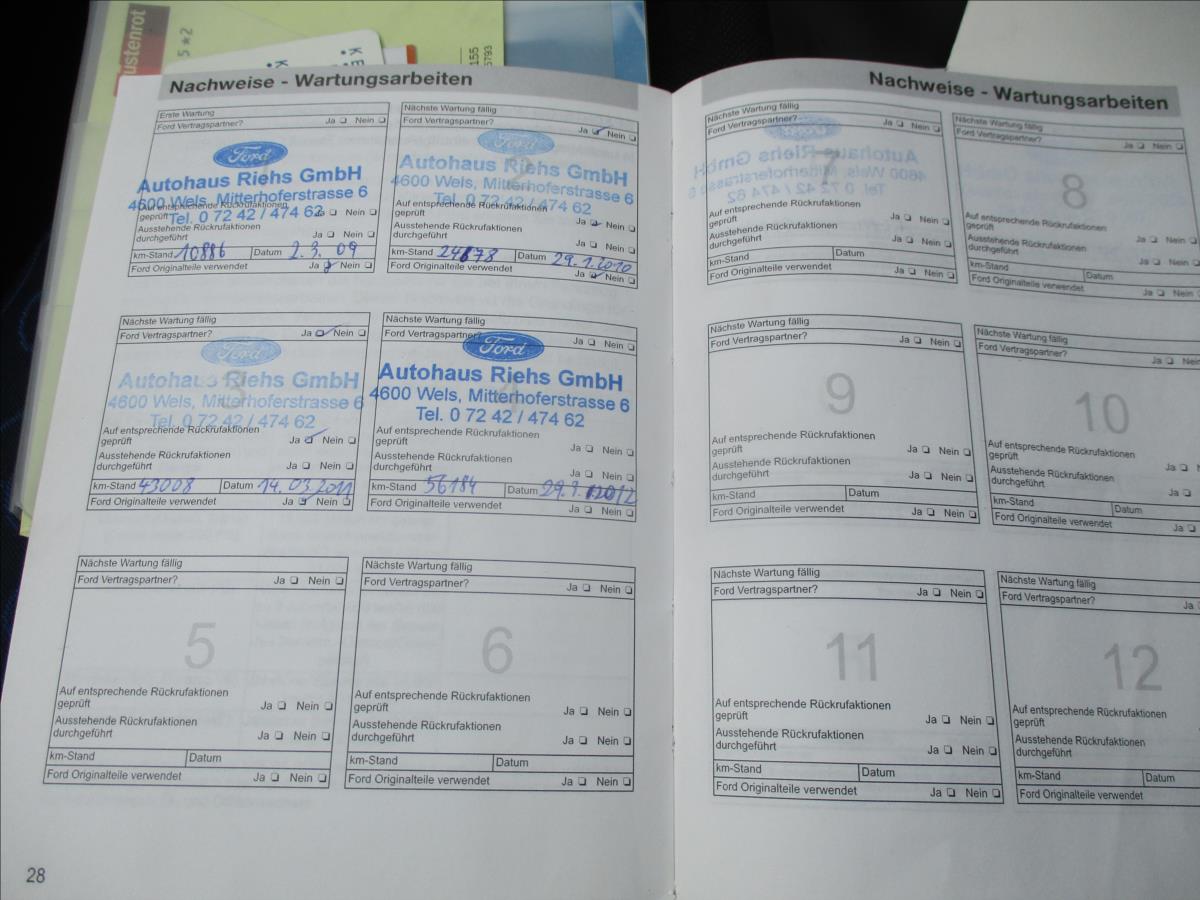 ustenrot
5★2
155
5793
Nachweise - Wartungsarbeiten
Erste Wartung
Ford Vertragspartner? Ja Nein
Ford
Autohaus Riehs GmbH
4600 Wels, Mitterhoferstrasse 6
Tel. 0 72 42 / 474 62
Auf entsprechende Rückrufaktionen
geprüft Ja Nein
Ausstehende Rückrufaktionen
durchgeführt Ja Nein
km-Stand 10886 Datum 2.3.09
Ford Originalteile verwendet Ja Nein
Nächste Wartung fällig
Ford Vertragspartner? Ja Nein
2
Ford
Autohaus Riehs GmbH
4600 Wels, Mitterhoferstrasse 6
Tel. 0 72 42 / 474 62
Auf entsprechende Rückrufaktionen
geprüft Ja Nein
Ausstehende Rückrufaktionen
durchgeführt Ja Nein
km-Stand 24878 Datum 29.1.2010
Ford Originalteile verwendet Ja Nein
Nächste Wartung fällig
Ford Vertragspartner? Ja Nein
3
Ford
Autohaus Riehs GmbH
4600 Wels, Mitterhoferstrasse 6
Tel. 0 72 42 / 474 62
Auf entsprechende Rückrufaktionen
geprüft Ja Nein
Ausstehende Rückrufaktionen
durchgeführt Ja Nein
km-Stand 43008 Datum 14.03.2011
Ford Originalteile verwendet Ja Nein
Nächste Wartung fällig
Ford Vertragspartner? Ja Nein
4
Ford
Autohaus Riehs GmbH
4600 Wels, Mitterhoferstrasse 6
Tel. 0 72 42 / 474 62
Auf entsprechende Rückrufaktionen
geprüft Ja Nein
Ausstehende Rückrufaktionen
durchgeführt Ja Nein
km-Stand 56184 Datum
Ford Originalteile verwendet Ja Nein
Nächste Wartung fällig
Ford Vertragspartner? Ja Nein
5
Auf entsprechende Rückrufaktionen
geprüft Ja Nein
Ausstehende Rückrufaktionen
durchgeführt Ja Nein
km-Stand Datum
Ford Originalteile verwendet Ja Nein
Nächste Wartung fällig
Ford Vertragspartner? Ja Nein
6
Auf entsprechende Rückrufaktionen
geprüft Ja Nein
Ausstehende Rückrufaktionen
durchgeführt Ja Nein
km-Stand Datum
Ford Originalteile verwendet Ja Nein
28
Nachweise - Wartungsarbeiten
Nächste Wartung fällig
Ford Vertragspartner? Ja Nein
7
Auf entsprechende Rückrufaktionen
geprüft Ja Nein
Ausstehende Rückrufaktionen
durchgeführt Ja Nein
km-Stand Datum
Ford Originalteile verwendet Ja Nein
Nächste Wartung fällig
Ford Vertragspartner? Ja Nein
8
Auf entsprechende Rückrufaktionen
geprüft Ja Nein
Ausstehende Rückrufaktionen
durchgeführt Ja Nein
km-Stand Datum
Ford Originalteile verwendet Ja Nein
Nächste Wartung fällig
Ford Vertragspartner? Ja Nein
9
Auf entsprechende Rückrufaktionen
geprüft Ja Nein
Ausstehende Rückrufaktionen
durchgeführt Ja Nein
km-Stand Datum
Ford Originalteile verwendet Ja Nein
Nächste Wartung fällig
Ford Vertragspartner? Ja Nein
10
Auf entsprechende Rückrufaktionen
geprüft Ja
Ausstehende Rückrufaktionen
durchgeführt Ja
km-Stand Datum
Ford Originalteile verwendet Ja
Nächste Wartung fällig
Ford Vertragspartner? Ja Nein
11
Auf entsprechende Rückrufaktionen
geprüft Ja Nein
Ausstehende Rückrufaktionen
durchgeführt Ja Nein
km-Stand Datum
Ford Originalteile verwendet Ja Nein
Nächste Wartung fällig
Ford Vertragspartner? Ja
12
Auf entsprechende Rückrufaktionen
geprüft
Ausstehende Rückrufaktionen
durchgeführt
km-Stand Datum
Ford Originalteile verwendet